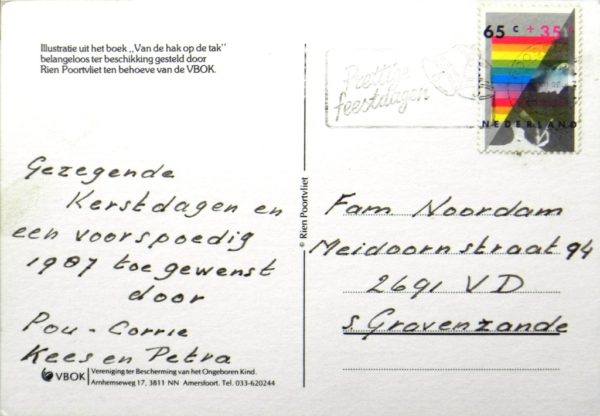 Illustratie uit het boek „Van de hak op de tak"
belangeloos ter beschikking gesteld door
Rien Poortvliet ten behoeve van de VBOK.
Prettige
feestdagen
65 c + 35 c
NEDERLAND
Gezegende
Kerstdagen en
een voorspoedig
1987 toegewenst
door
Pou - Corrie
Kees en Petra
VBOK
Vereniging ter Bescherming van het Ongeboren Kind.
Arnhemseweg 17, 3811 NN Amersfoort. Tel. 033-620244
© Rien Poortvliet
Fam Noordam
Meidoornstraat 94
2691 VD
s Gravenzande